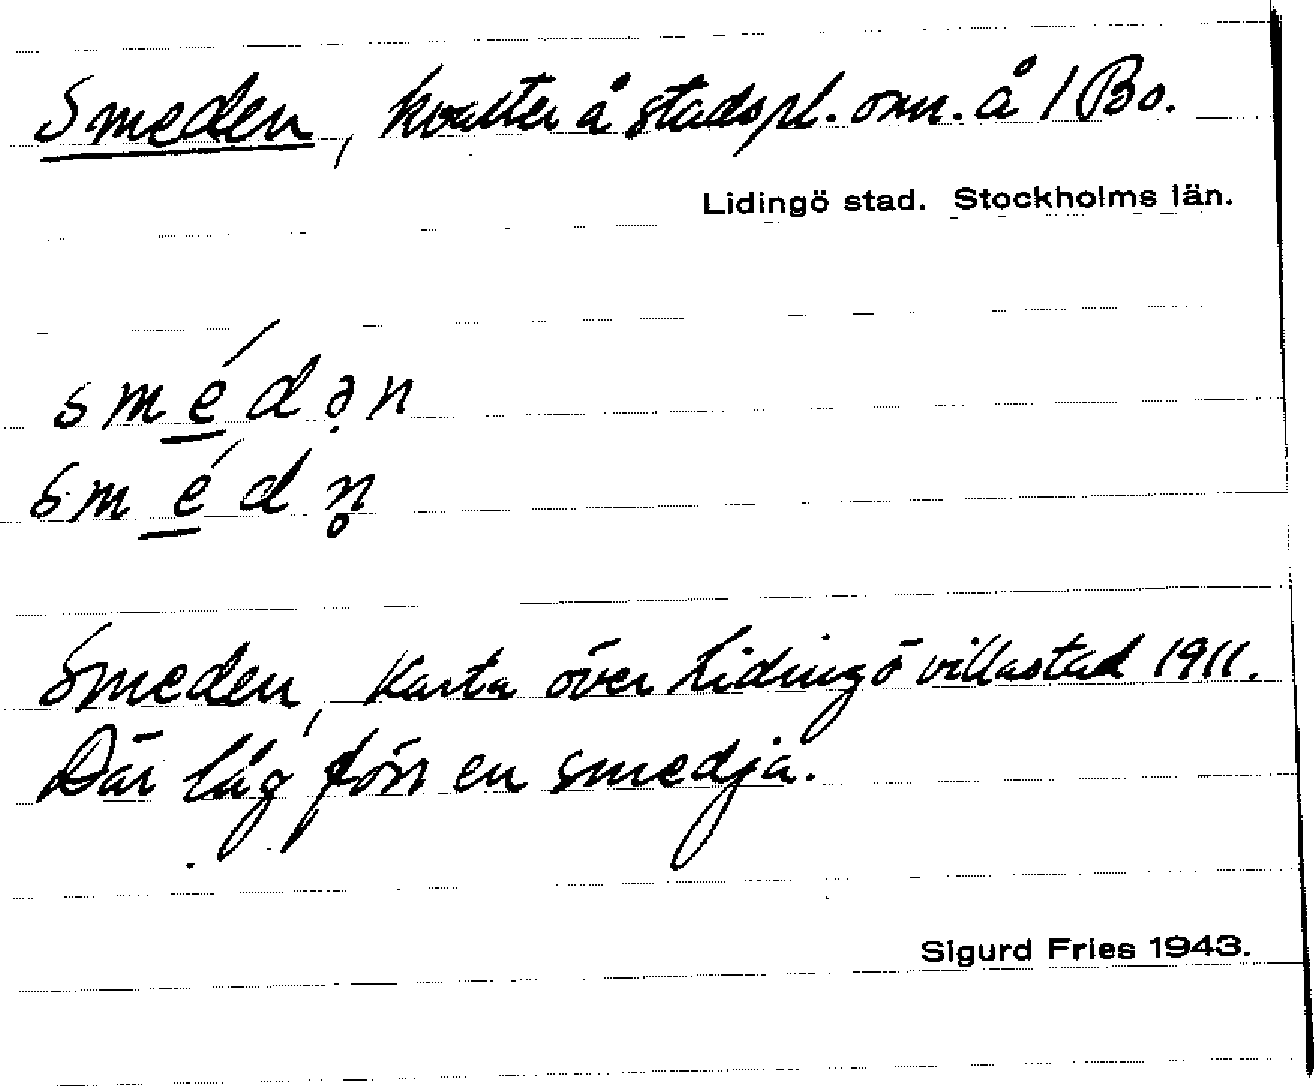 Smeden, kvarter å stadspl. omr. å 1 Bo.
Lidingö stad. Stockholms län.
smédə̣n
smédn̥
Smeden, Karta över Lidingö villastad 1911.
Där låg förr en smedja.
Sigurd Fries 1943.